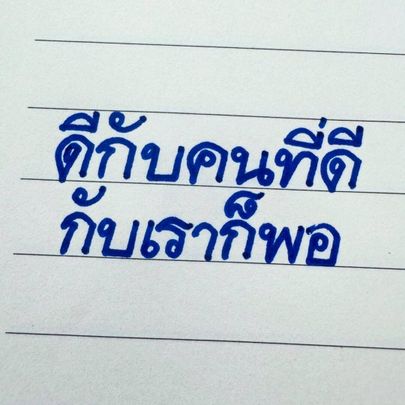 ดีกับคนที่ดี
กับเราก็พอ